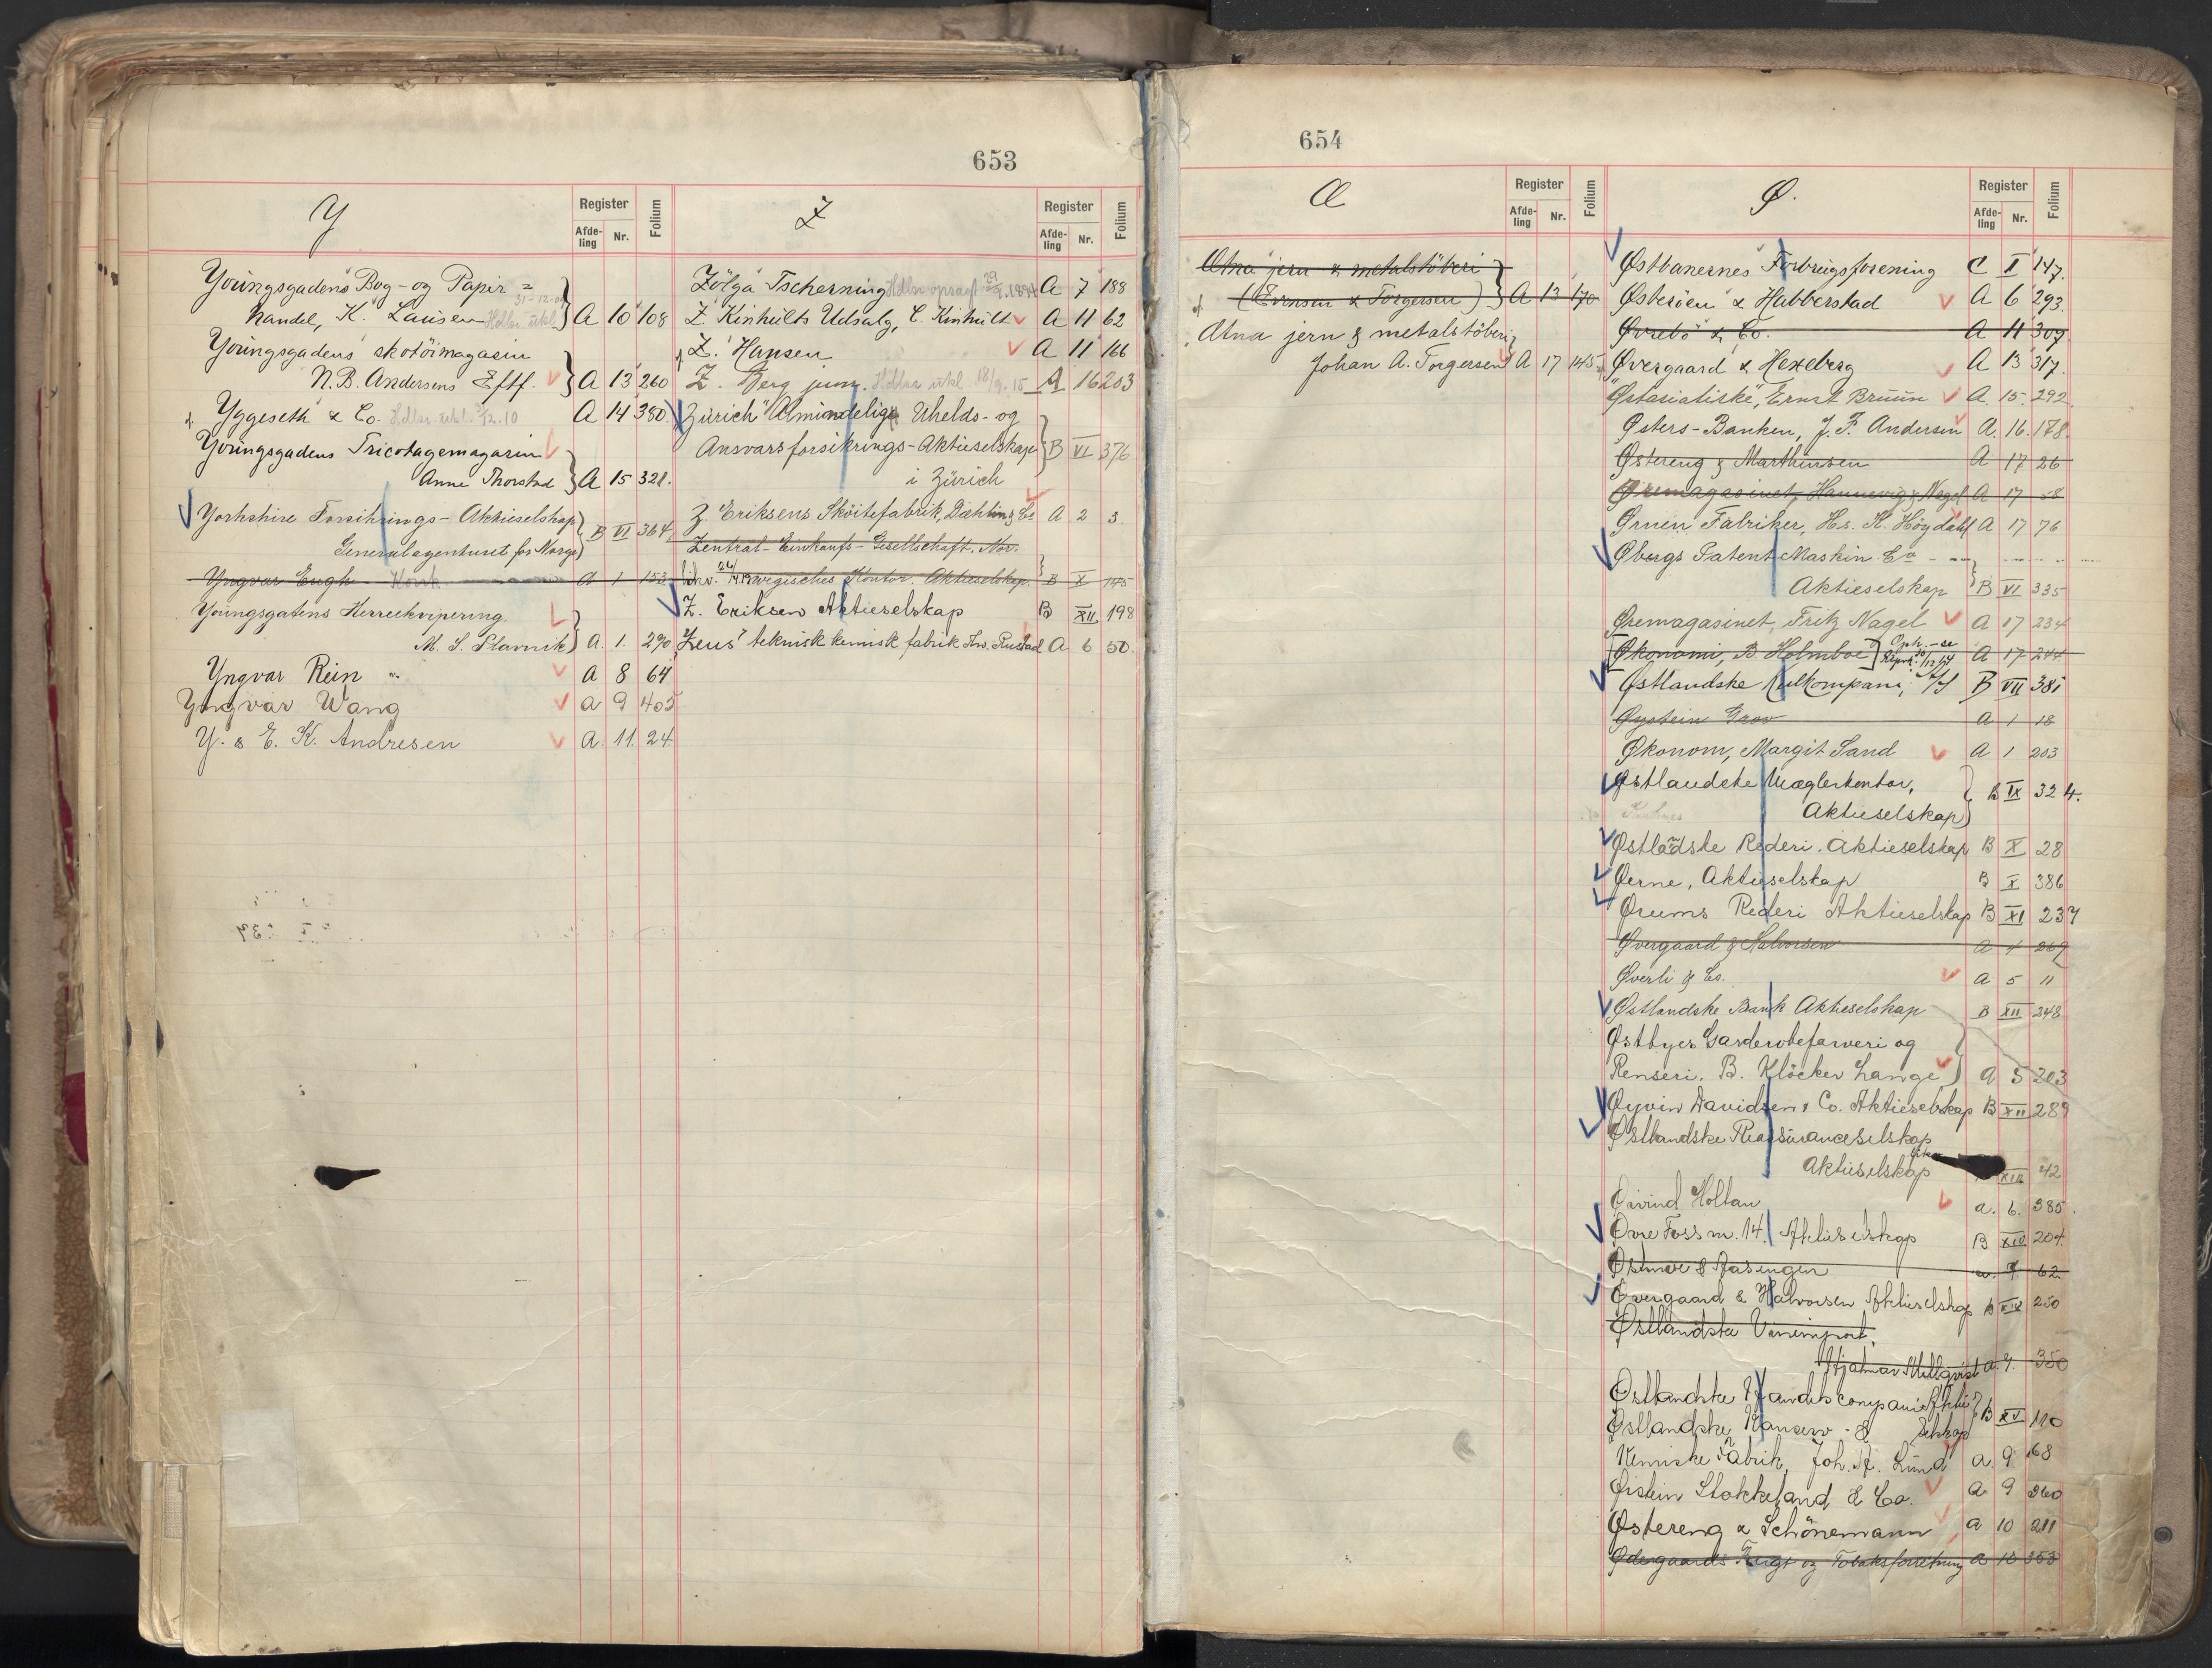 653
Y
Register
Afde-
ling
Nr.
Folium
Youngsgadens Bog- og Papir =
handel, K. Lausen A 10 108
Youngsgadens skotöimagasin
N.B. Andersens Eftf. A 13 260
Yggeseth & Co. A 14 380
Youngsgadens Tricotagemagasin
Anne Thorstad A 15 321.
Yorkshire Forsikrings- Aktieselskap
Generalagenturet for Norge B VI 364
Yngvar Engh A 1 153
Youngsgatens Herreekvipering
M. S. Slavnik A. 1. 290
Yngvar Rein A 8 64
Yngvar Wang a 9 405
Y. & E. K. Andresen A. 11. 24
Z
Register
Afde-
ling
Nr.
Folium
Zölga Tscherning A 7 188
Z. Kinhults Udsalg, C. Kinhult A 11 62
Z. Hansen A 11 166
Z. Berg junr. Hdlnr. utkl. 18/9. 15 A 16 203
"Zürich" Almindelige Uhelds- og
Ansvarsforsikrings-Aktieselskap B VI 376
i Zürich
Z. Eriksens Sköitefabrik, Dæhlin & Co A 2 3
Zentral-Einkaufs-Gesellschaft. Nor-
wegisches Kontor. Aktieselskap. B X 145
Z. Eriksen Aktieselskap B XII 198
"Zeus" teknisk kemisk fabrik Thv. Rustad A 6 50
654
Æ
Register
Afde-
ling
Nr.
Folium
Ætna jern & metalstöberi
(Evensen & Torgersen) A 13 170
Ætna jern & metalstöberi
Johan A. Torgersen A 17 145
Ø.
Register
Afde-
ling
Nr.
Folium
Østbanernes Forbrugsforening C I 147.
Østerien & Hubberstad A 6 293.
Øvrebö & Co. A 11 309
Øvergaard & Hexeberg A 13 317.
"Østasiatiske", Ernst Bruun A. 15. 292
Østers-Banken, J. F. Andersen A. 16. 178
Østereng & Marthinsen A 17 26
Øremagasinet, Hannevig & Nagel A 17 58
Ørnen Fabriker, Hs. K. Höydahl A 17 76
Øbergs Patent Maskin Co
Aktieselskap B VI 335
Øremagasinet, Fritz Nagel A 17 234
Økonomi, B Holmboe A 17 244
Østlandske Kulkompani, A/S B VII 381
Øystein Grov A 1 18
Økonom, Margit Sand A 1 203
Østlandske Mæglerkontor,
Aktieselskap B IX 324.
Østlandske Rederi. Aktieselskap B X 28
Øerne, Aktieselskap B X 386
Ørums Rederi Aktieselskap B XI 237
Øvergaard & Halvorsen A 4 269
Øverli & Co. A 5 11
Østlandske Bank Aktieselskap B XII 248
Østbyes Garderobefarveri og
Renseri. B. Klöcker Lange A 5 203
Øyvin Davidsen & Co. Aktieselskap B XII 289
Østlandske Reassuranceselskap
Aktieselskap XIII 42
Øivind Holtan a. 6. 385.
Øvre Foss nr. 14, Aktieselskap B XIII 204
Østmoe & Aasengen a. 7. 62
Øvergaard & Halvorsen Aktieselskap B XIV 250
Østlandske Vinimport,
Hjalmar Millqvist a. 7. 350
Østlandske Handelscompani Aktie
selskap B XV 110
Østlandske Konserv- &
Kemiske Fabrik, Joh. A. Lund a 9 168
Øistein Stokkeland & Co. a 9 360
Østereng & Schönemann a 10 211
Ødegaards Frugt og Tobaksforretning a 10 353